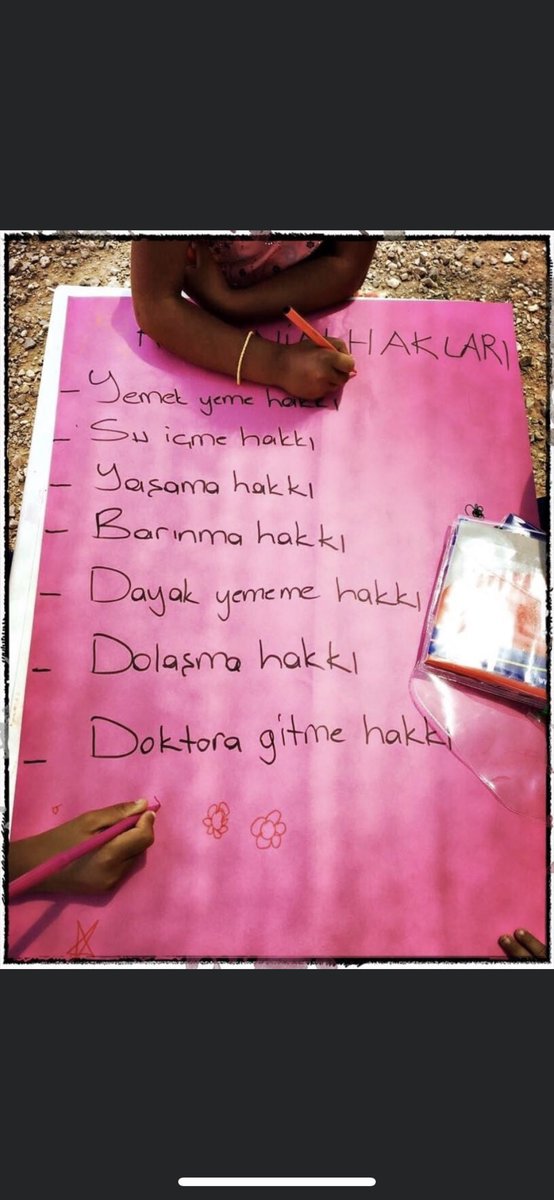 HAKLARI
- Yemek yeme hakkı
- Su içme hakkı
- Yaşama hakkı
- Barınma hakkı
- Dayak yememe hakkı
- Dolaşma hakkı
- Doktora gitme hakkı